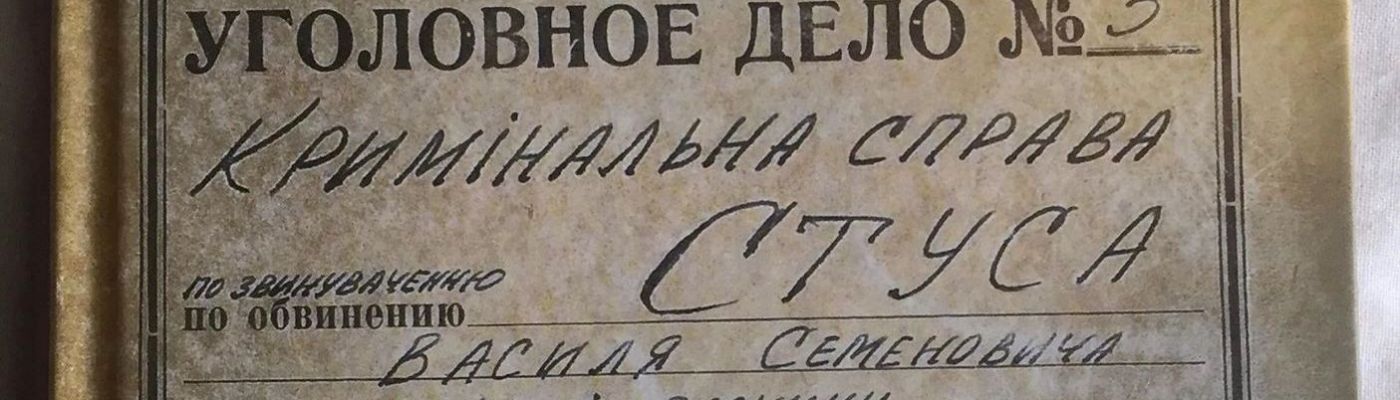 УГОЛОВНОЕ ДЕЛО № 3
КРИМІНАЛЬНА СПРАВА
СТУСА
ПО ЗВИНУВАЧЕННЮ
по обвинению
ВАСИЛЯ СЕМЕНОВИЧА